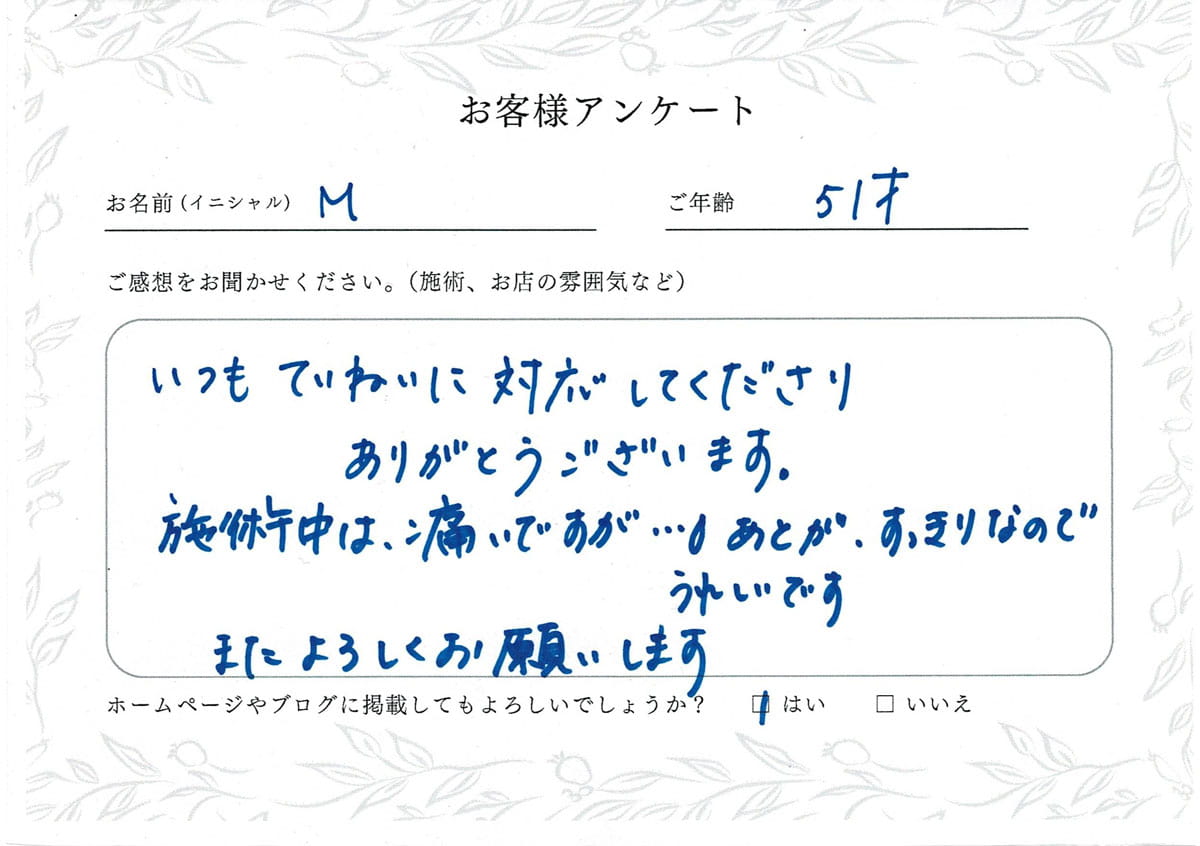 お客様アンケート
お名前(イニシャル) M ご年齢 51才
ご感想をお聞かせください。(施術、お店の雰囲気など)
いつも ていねいに 対応 してくださり
ありがとうございます。
施術中は、痛いですが…、あとが、すっきりなので
うれしいです
またよろしくお願いします
ホームページやブログに掲載してもよろしいでしょうか? □ はい □ いいえ